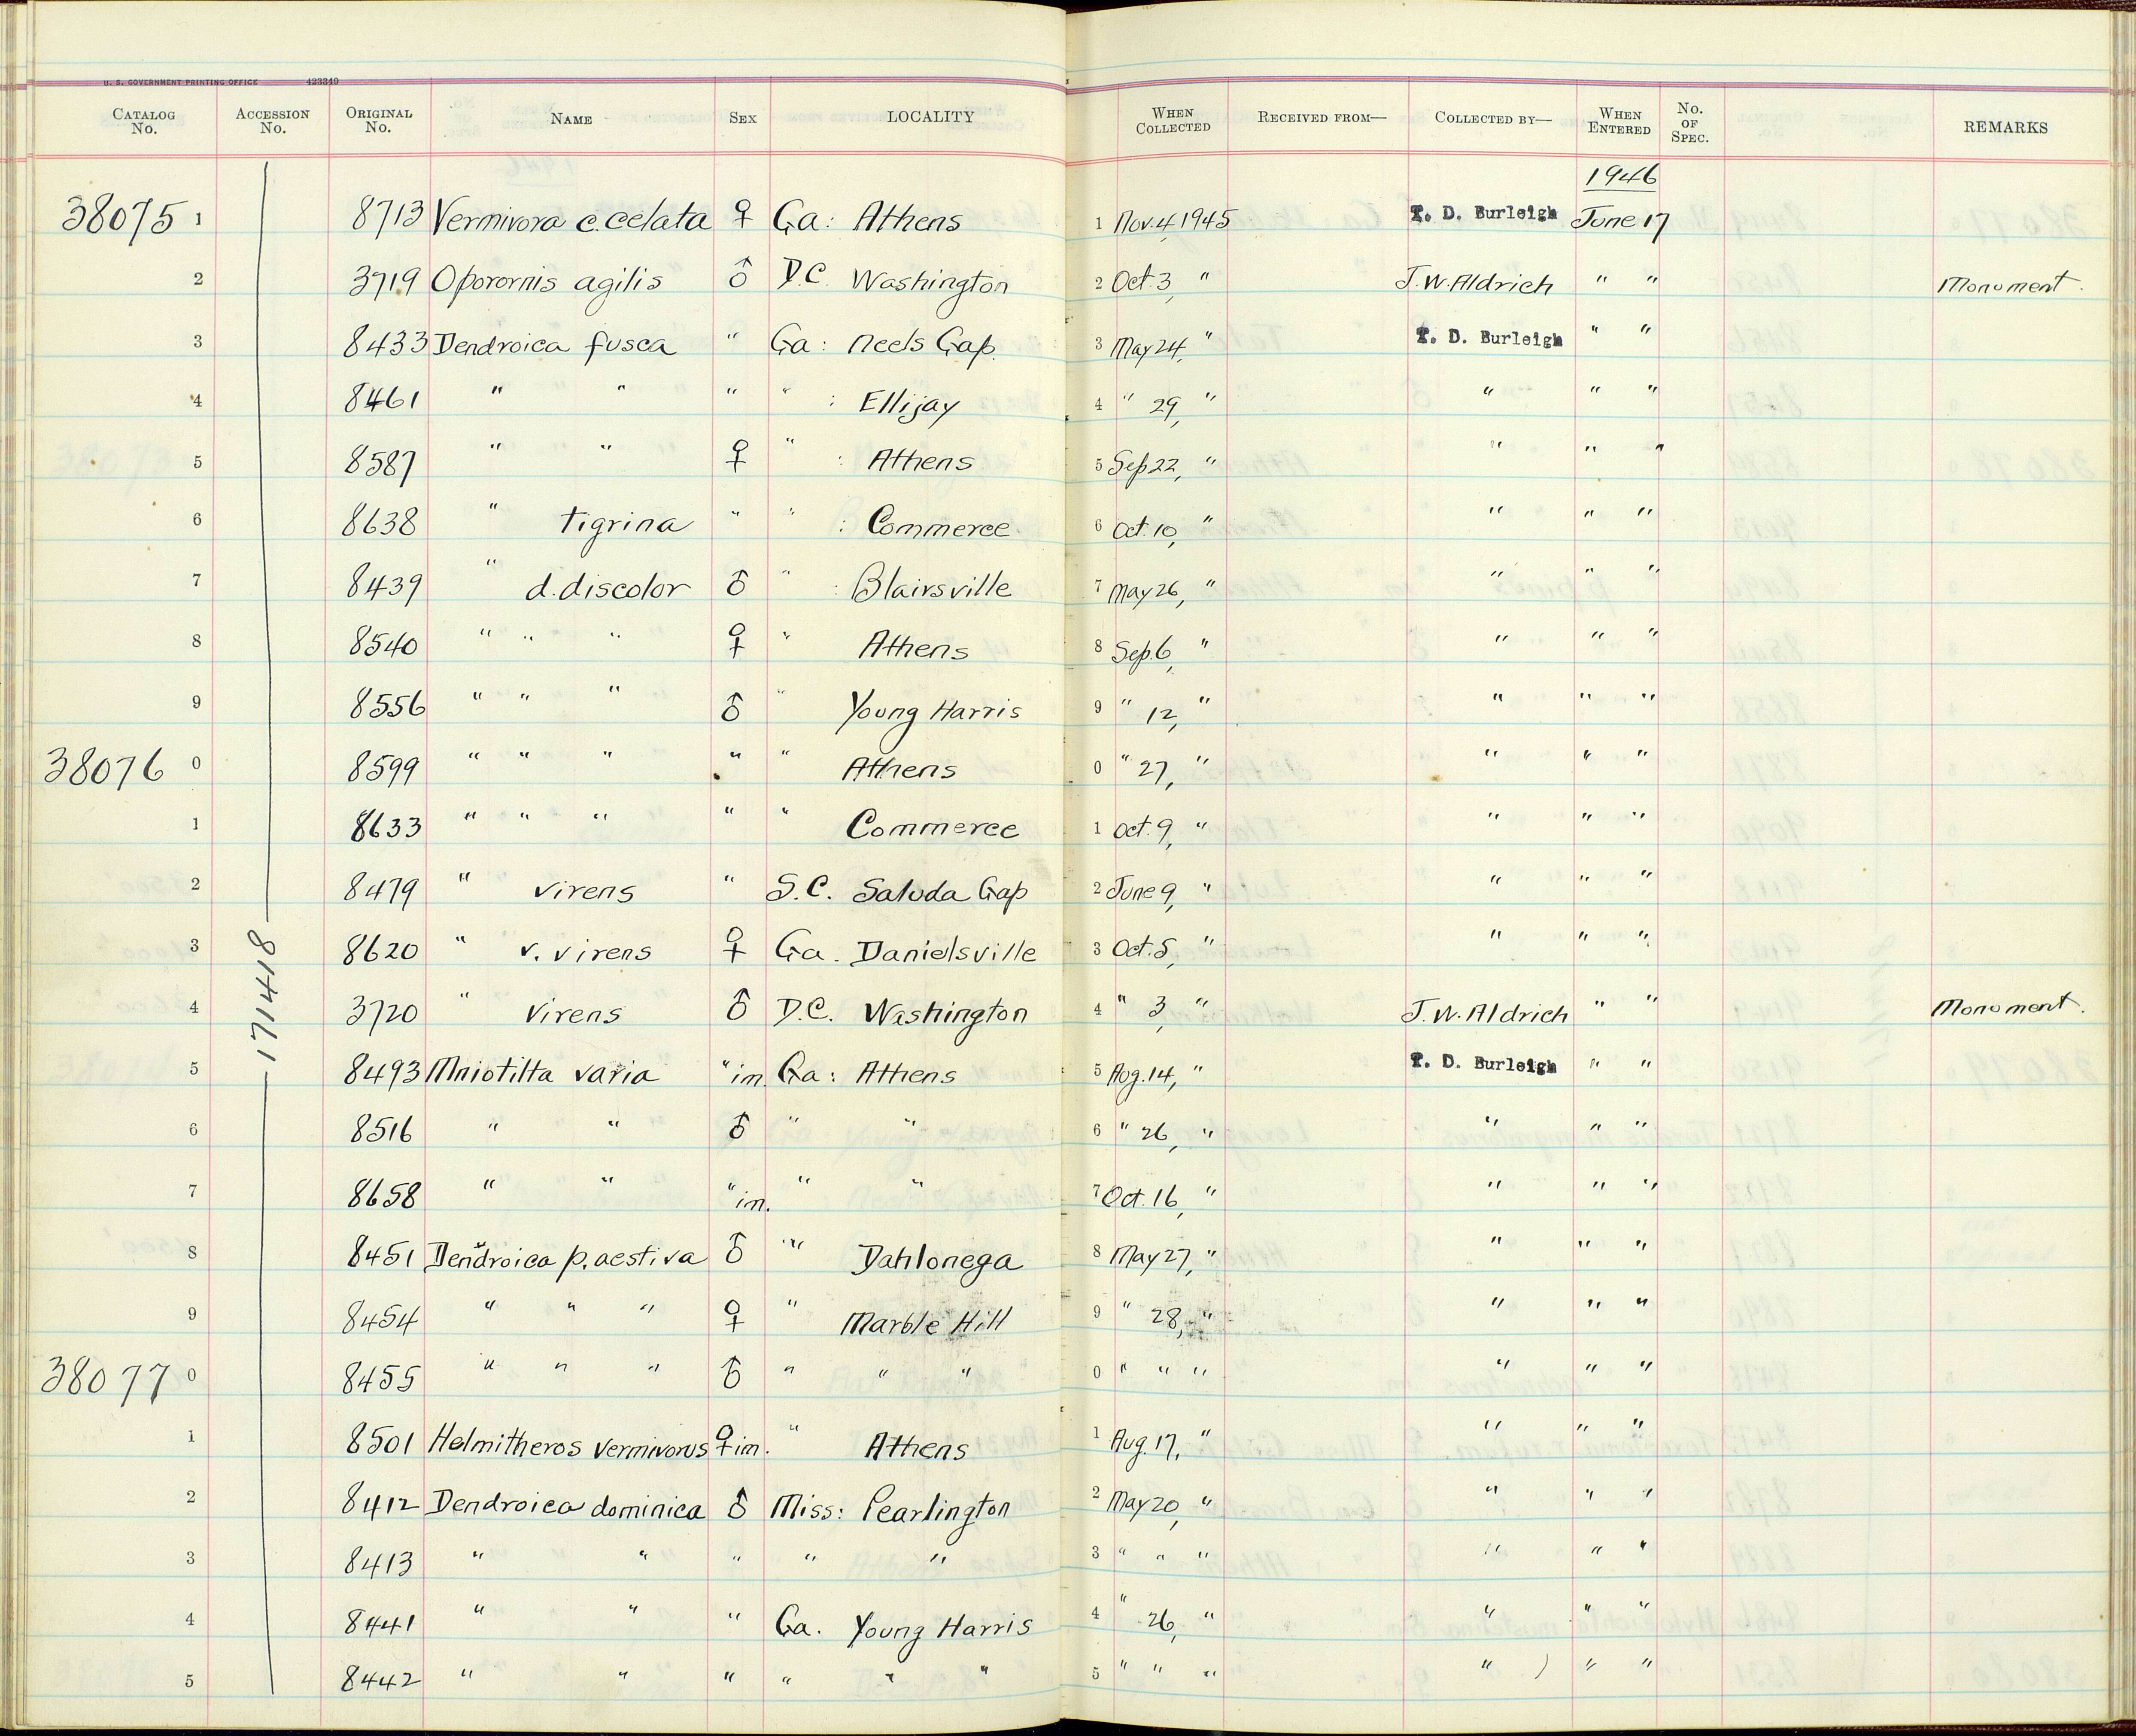 U. S. GOVERNMENT PRINTING OFFICE 423349
CATALOG No. ACCESSION No. ORIGINAL No. NAME SEX LOCALITY WHEN COLLECTED RECEIVED FROM— COLLECTED BY— WHEN ENTERED No. OF SPEC. REMARKS
1946
38075 1 8713 Vermivora c. celata ♀ Ga: Athens 1 Nov. 4, 1945 T. D. Burleigh June 17
2 3719 Oporornis agilis ♂ D.C. Washington 2 Oct. 3, " J. W. Aldrich " " Monument.
3 8433 Dendroica fusca " Ga: Neels Gap. 3 May 24, " T. D. Burleigh " "
4 8461 " " " " : Ellijay 4 " 29, " " " "
5 8587 " " ♀ " : Athens 5 Sep 22, " " " "
6 8638 " tigrina " " : Commerce 6 Oct. 10, " " " "
7 8439 " d. discolor ♂ " : Blairsville 7 May 26, " " " "
8 8540 " " " ♀ " Athens 8 Sep. 6, " " " "
9 8556 " " " ♂ " Young Harris 9 " 12, " " " "
38076 0 8599 " " " " " Athens 0 " 27, " " " "
1 8633 " " " " " Commerce 1 Oct. 9, " " " "
2 8479 " virens " S.C. Saluda Gap 2 June 9, " " " "
3 8620 " v. virens ♀ Ga. Danielsville 3 Oct. 5, " " " "
171418
4 3720 " virens ♂ D.C. Washington 4 " 3, " J. W. Aldrich " " Monument.
5 8493 Mniotilta varia " im. Ga: Athens 5 Aug. 14, " T. D. Burleigh " "
6 8516 " " ♂ " " 6 " 26, " " " "
7 8658 " " " im. " " 7 Oct. 16, " " " "
8 8451 Dendroica p. aestiva ♂ " Dahlonega 8 May 27, " " " "
9 8454 " " " ♀ " Marble Hill 9 " 28, " " " "
38077 0 8455 " " " ♂ " " " 0 " " " " " "
1 8501 Helmitheros vermivorus ♀ im. " Athens 1 Aug. 17, " " " "
2 8412 Dendroica dominica ♂ Miss: Pearlington 2 May 20, " " " "
3 8413 " " " " " 3 " " " " " "
4 8441 " " " Ga. Young Harris 4 " 26, " " " "
5 8442 " " " " " " 5 " " " " " "